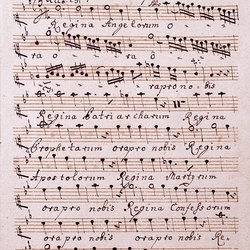 Regina Angelorum o
ra o ra o
ra pro no bis
Regina Patriarcharum Regina
Prophetarum ora pro nobis Regina
Apostolorum Regina Martyrum
ora pro nobis Regina Confessorum
ora pro nobis ora pro nobis Re